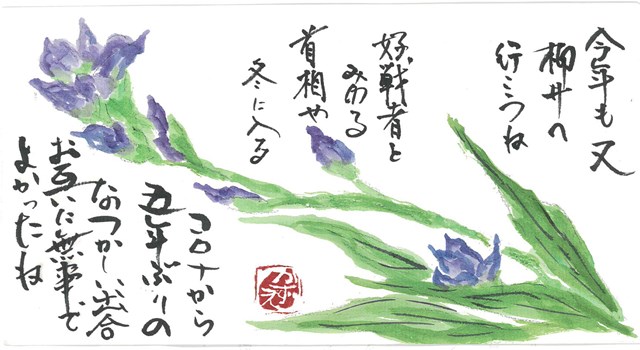 今年も又
柳井へ
行こうね
好戦者と
みゆる
首相や
冬に入る
コロナから
五年ぶりの
なつかしい出合
お互いに無事で
よかったね